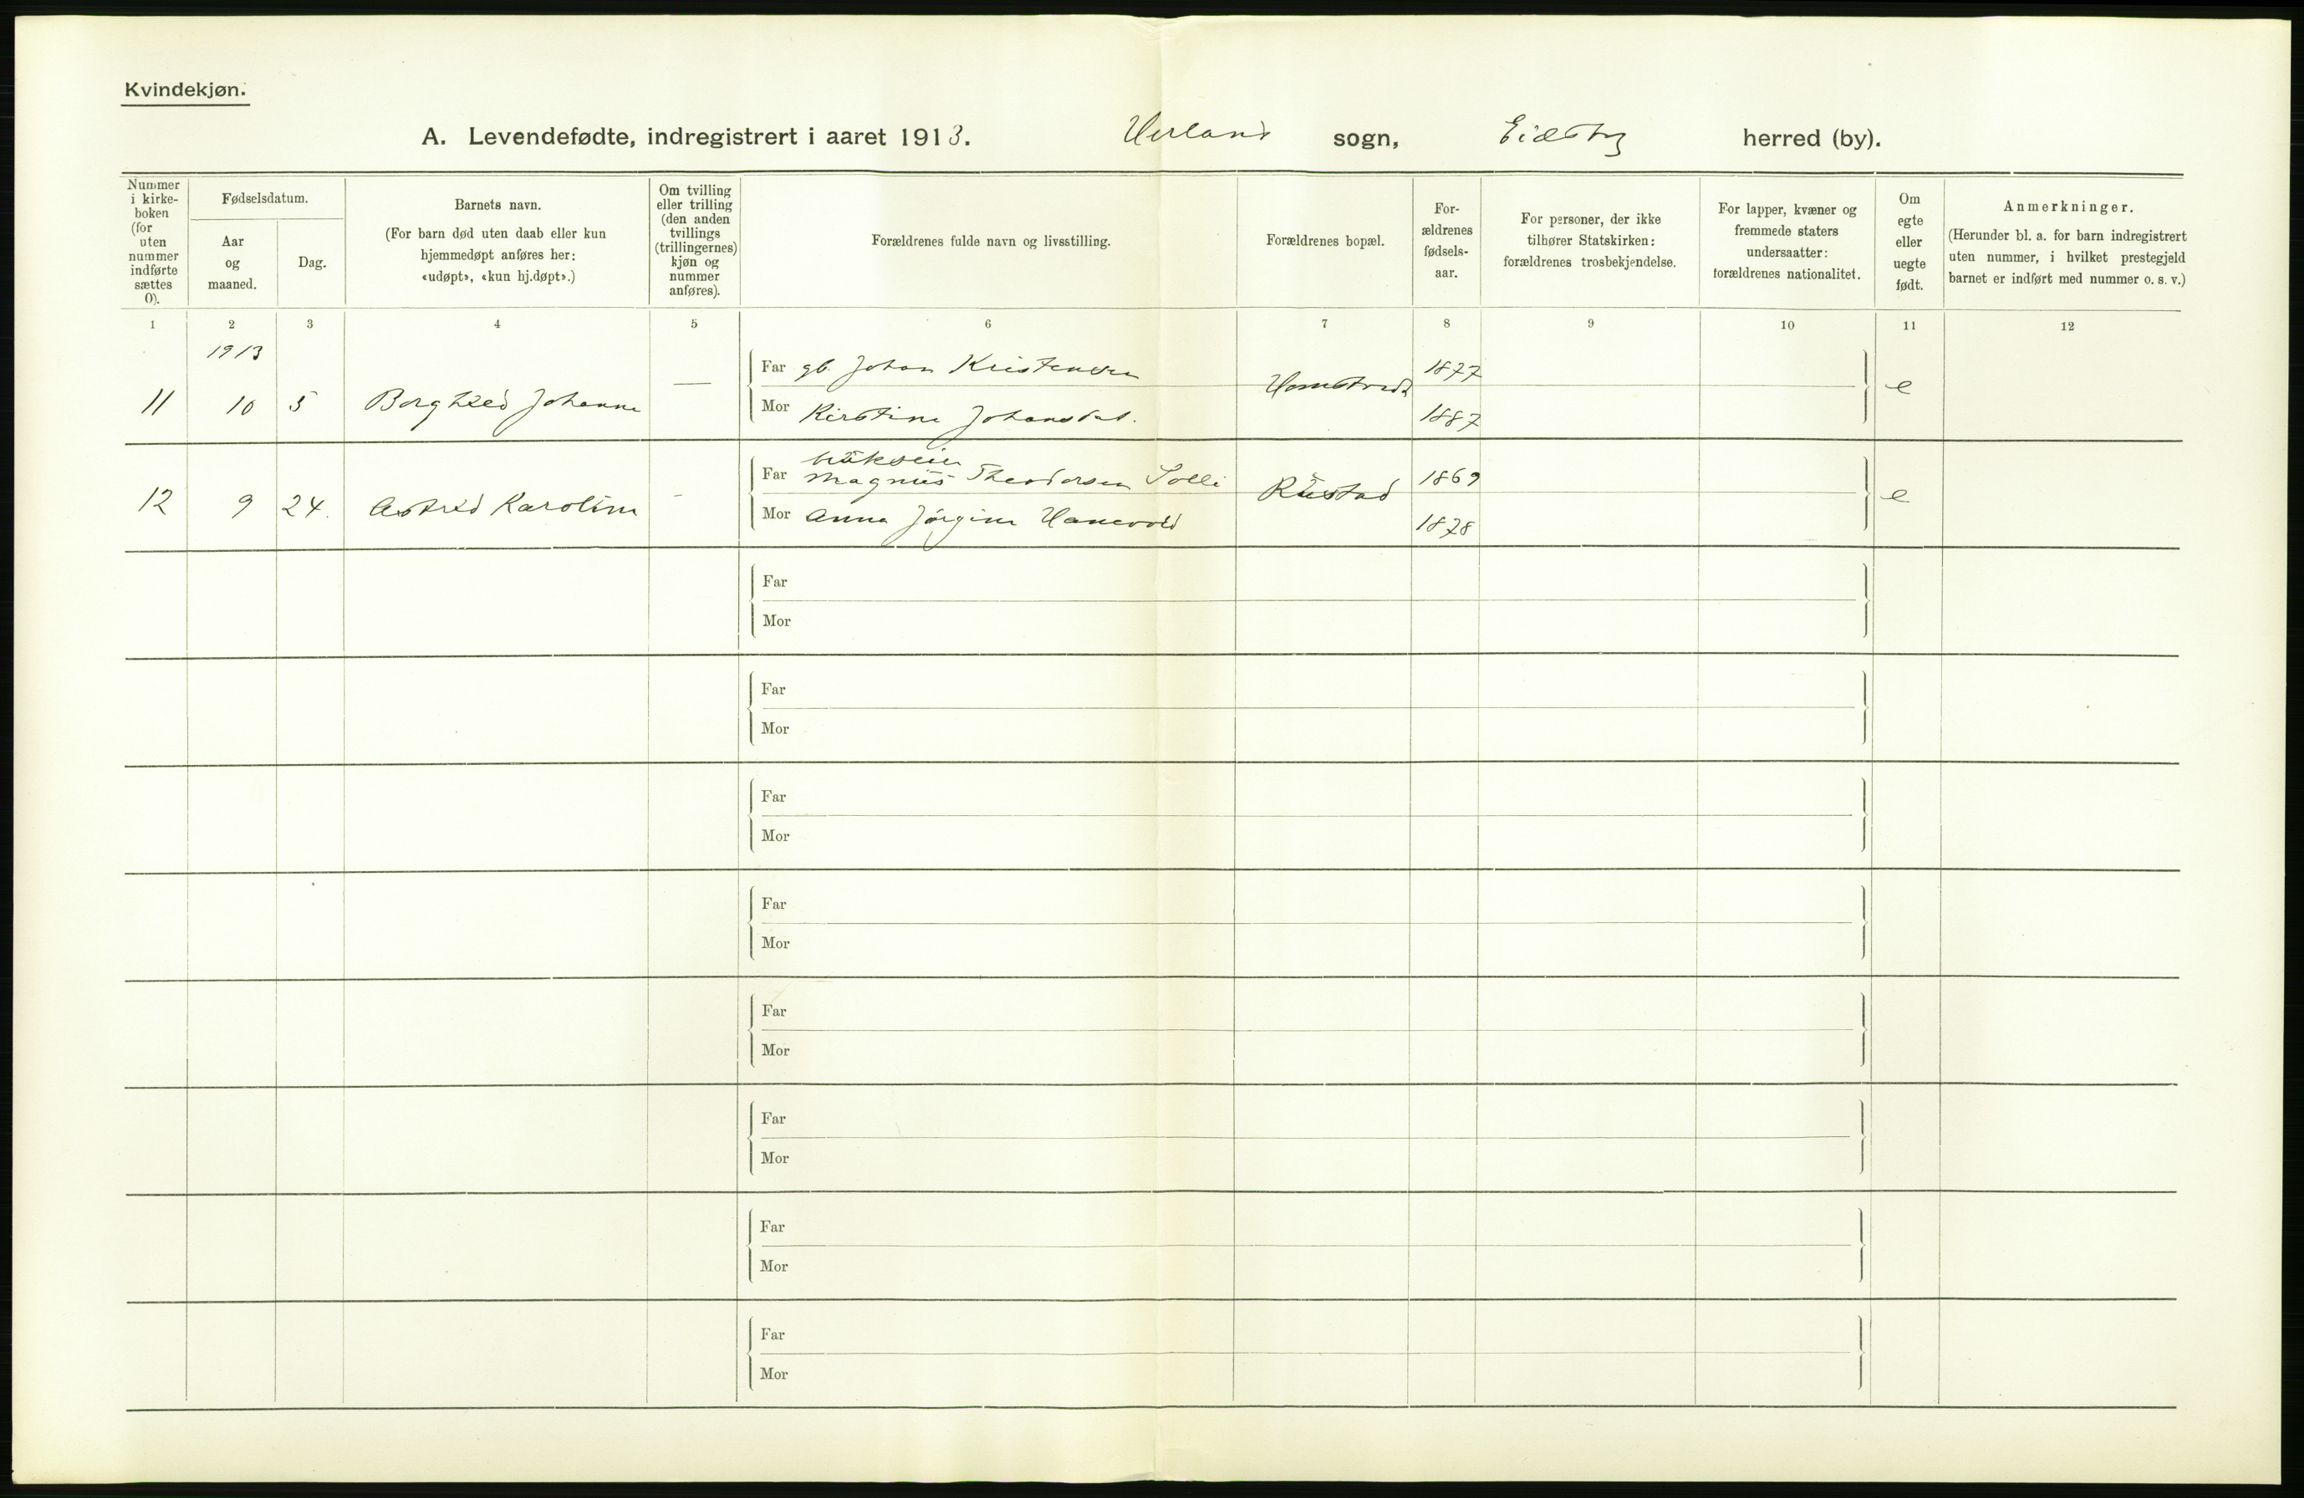 Kvindekjøn.
A. Levendefødte, indregistrert i aaret 1913. Herland sogn, Eidsbg herred (by).
Nummer i kirkeboken (for uten nummer indførte sættes 0).
Fødselsdatum.
Aar og maaned.
Dag.
Barnets navn.
(For barn død uten daab eller kun hjemmedøpt anføres her: «udøpt», «kun hj.døpt».)
Om tvilling eller trilling (den anden tvillings (trillingernes) kjøn og nummer anføres).
Forældrenes fulde navn og livsstilling.
Forældrenes bopæl.
Forældrenes fødselsaar.
For personer, der ikke tilhører Statskirken: forældrenes trosbekjendelse.
For lapper, kvæner og fremmede staters undersaatter: forældrenes nationalitet.
Om egte eller uegte født.
Anmerkninger.
(Herunder bl. a. for barn indregistrert uten nummer, i hvilket prestegjeld barnet er indført med nummer o. s. v.)
1 2 3 4 5 6 7 8 9 10 11 12
1913
Far gb. Johan Kristensen 1877
11 10 5 Borghild Johanne — Homstvedt e
Mor Kirstine Johansdat. 1887
brukseier
Far Magnus Theodorsen Solli 1869
12 9 24. Astrid Karoline - Rustad e
Mor Anna Jørgine Hanevold 1878
Far
Mor
Far
Mor
Far
Mor
Far
Mor
Far
Mor
Far
Mor
Far
Mor
Far
Mor